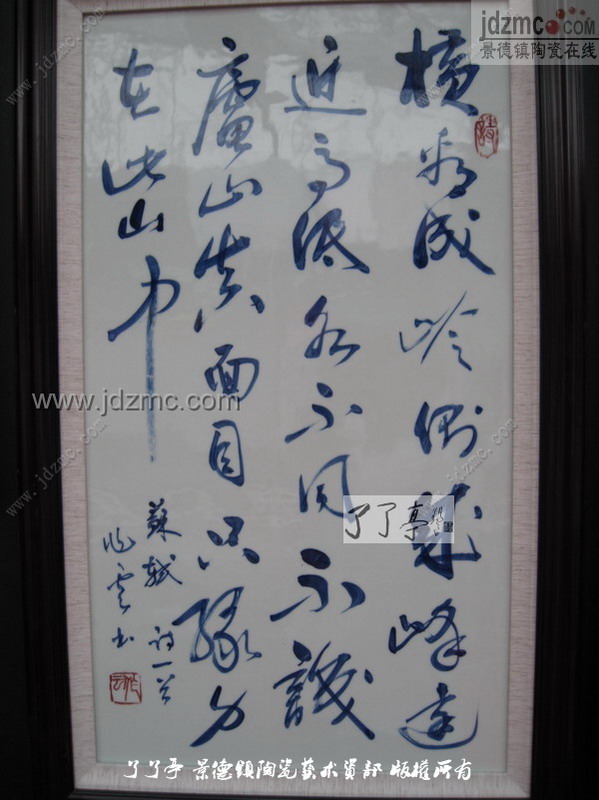 橫看成岭側成峰遠
近高低各不同不識
廬山真面目只緣身
在此山中
蘇軾詩一首
jdzmc.com
景德镇陶瓷在线
www.jdzmc.com
www.jdzmc.com
www.jdzmc.com
www.jdzmc.com
www.jdzmc.com
了了亭
了了亭 景德鎮陶瓷藝术資部 版權所有